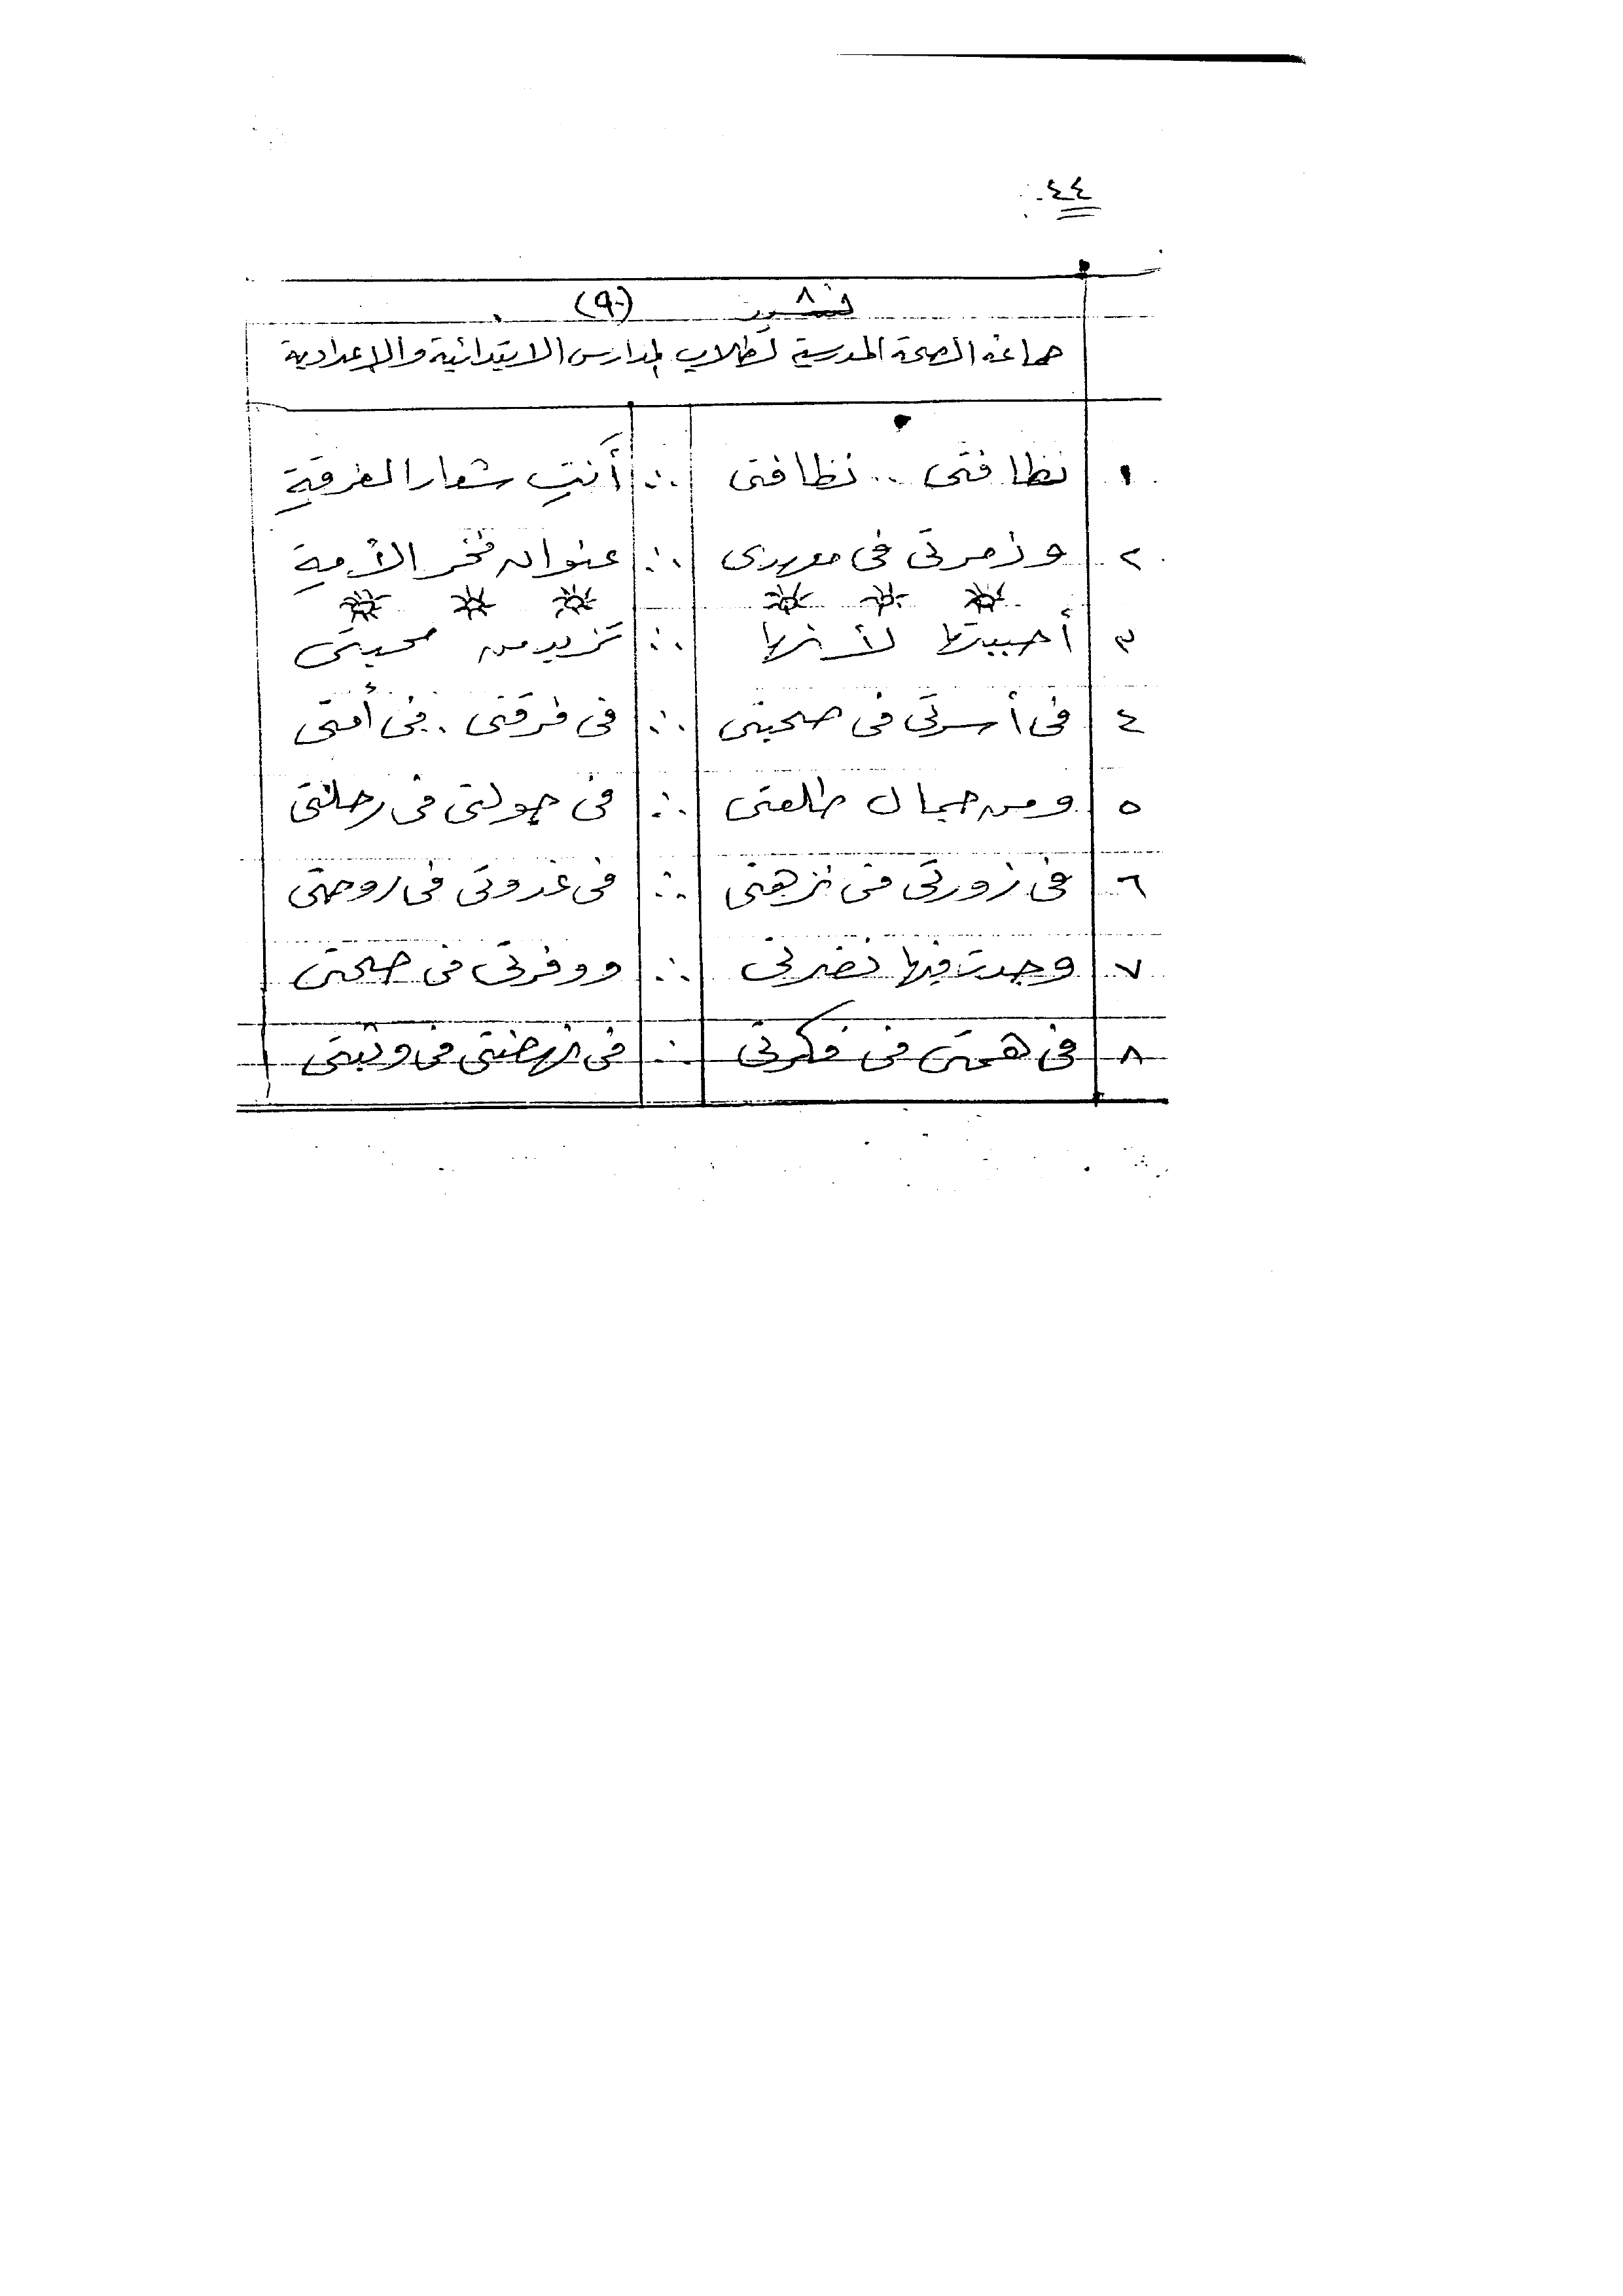 ٤٤
نشيد (٩)
جماعة الصحة المدرسية لطلاب المدارس الابتدائية والإعدادية
١ نظافتى .. نظافتى ∴ أَنتِ شعار الفرقةِ
٢ وزمرتى فى معهدى ∴ عنوان فخر الأمةِ
٣ أحببتها لأنها ∴ تزيد من محبتى
٤ فى أسرتى فى صحبتى ∴ فى فرقتى . فى أُمتى
٥ ومن جمال طلعتى ∴ فى جولتى فى رحلتى
٦ فى زورتى فى نزهتى ∴ فى غدوتى فى روحتى
٧ وجدت فيها نضرتى ∴ ووفرتى فى صحتى
٨ فى همتى فى فكرتى ∴ فى نهضتى فى وثبتى